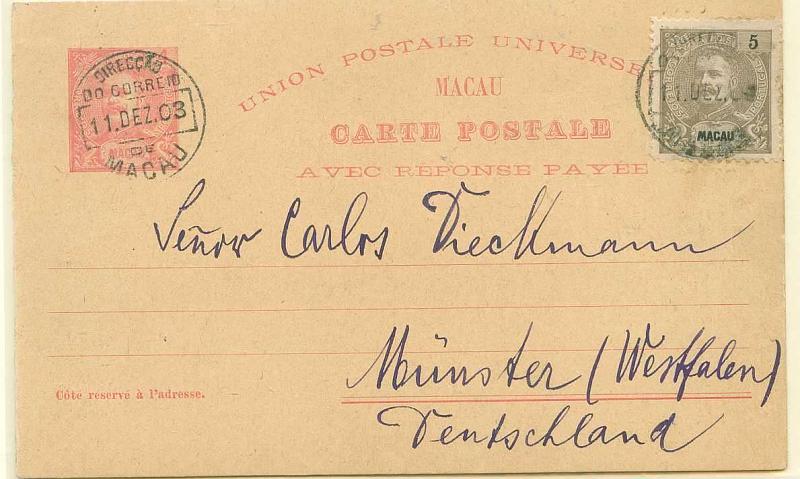 UNION POSTALE UNIVERSE
MACAU
CARTE POSTALE
AVEC RÉPONSE PAYÉE
DIRECÇÃO
DO CORREIO
11.DEZ.03
DE
MACAU
MACAU
5
MACAU
11.DEZ.03
Señor Carlos Dieckmann
Münster (Westfalen)
Deutschland
Côté reservé à l'adresse.